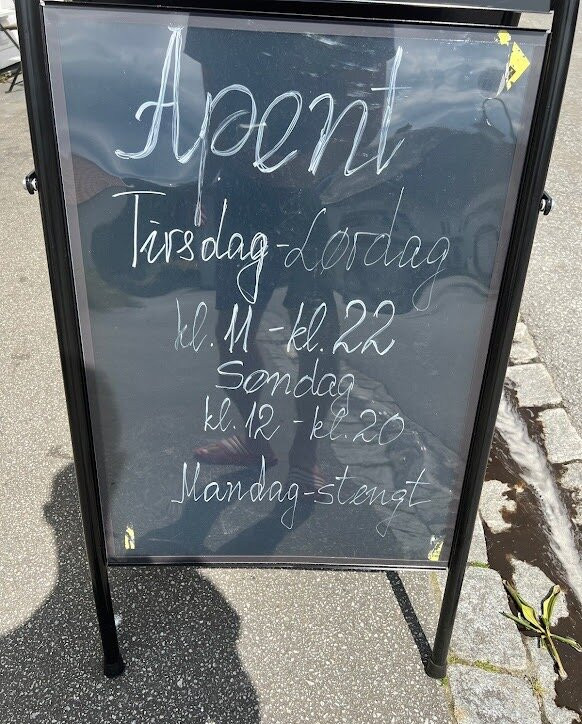 Apent
Tirsdag-Lørdag
kl. 11 - kl. 22
Søndag
kl. 12 - kl. 20
Mandag-stengt